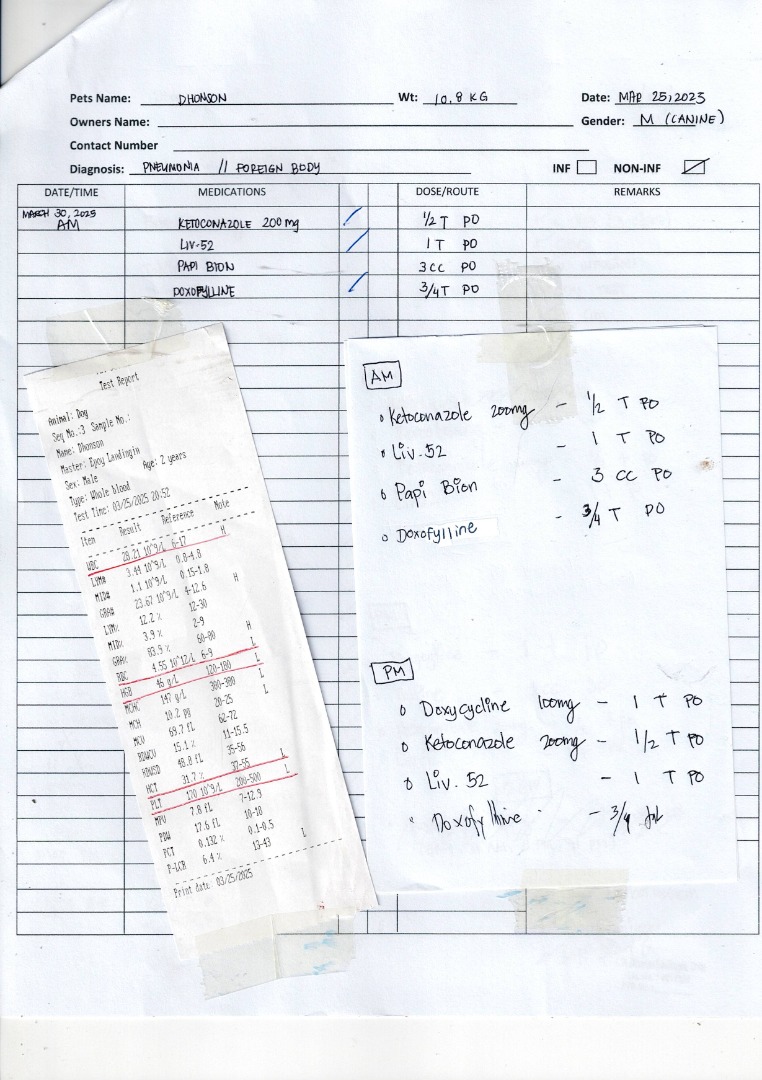 Pets Name: DHONSON Wt: 10.8 KG Date: MAR 25, 2023
Owners Name: Gender: M (CANINE)
Contact Number
Diagnosis: PNEUMONIA // FOREIGN BODY INF NON-INF
DATE/TIME MEDICATIONS DOSE/ROUTE REMARKS
MARCH 30, 2025
AM KETOCONAZOLE 200 mg 1/2 T PO
LIV-52 1 T PO
PAPI BION 3 CC PO
DOXOFYLLINE 3/4 T PO
Test Report
Animal: Dog
Seq No.:3 Sample No.:
Name: Dhonson
Master: Epoy Landingin
Sex: Male Age: 2 years
Type: Whole blood
Test Time: 03/25/2025 20:52
Item Result Reference Note
WBC 28.21 10^9/L 6-17 H
LYM# 3.44 10^9/L 0.8-4.8
MID# 1.1 10^9/L 0.15-1.8
GRA# 23.67 10^9/L 4-12.6 H
LYM% 12.2 % 12-30
MID% 3.9 % 2-9
GRA% 83.9 % 60-80 H
RBC 4.55 10^12/L 6-9 L
HGB 46 g/L 120-180 L
MCHC 147 g/L 300-380 L
MCH 10.2 pg 20-25 L
MCV 69.7 fL 62-72
RDWCV 15.1 % 11-15.5
RDWSD 48.8 fL 35-56
HCT 31.7 % 37-55 L
PLT 170 10^9/L 200-500 L
MPV 7.8 fL 7-12.9
PDW 17.6 fL 10-18
PCT 0.132 % 0.1-0.5
P-LCR 6.4 % 13-43 L
Print date: 03/25/2025
AM
Ketoconazole 200mg - 1/2 T PO
Liv.52 - 1 T PO
Papi Bion - 3 cc PO
Doxofylline - 3/4 T PO
PM
Doxycycline 100mg - 1 T PO
Ketoconazole 200mg - 1/2 T PO
Liv. 52 - 1 T PO
Doxofylline - 3/4